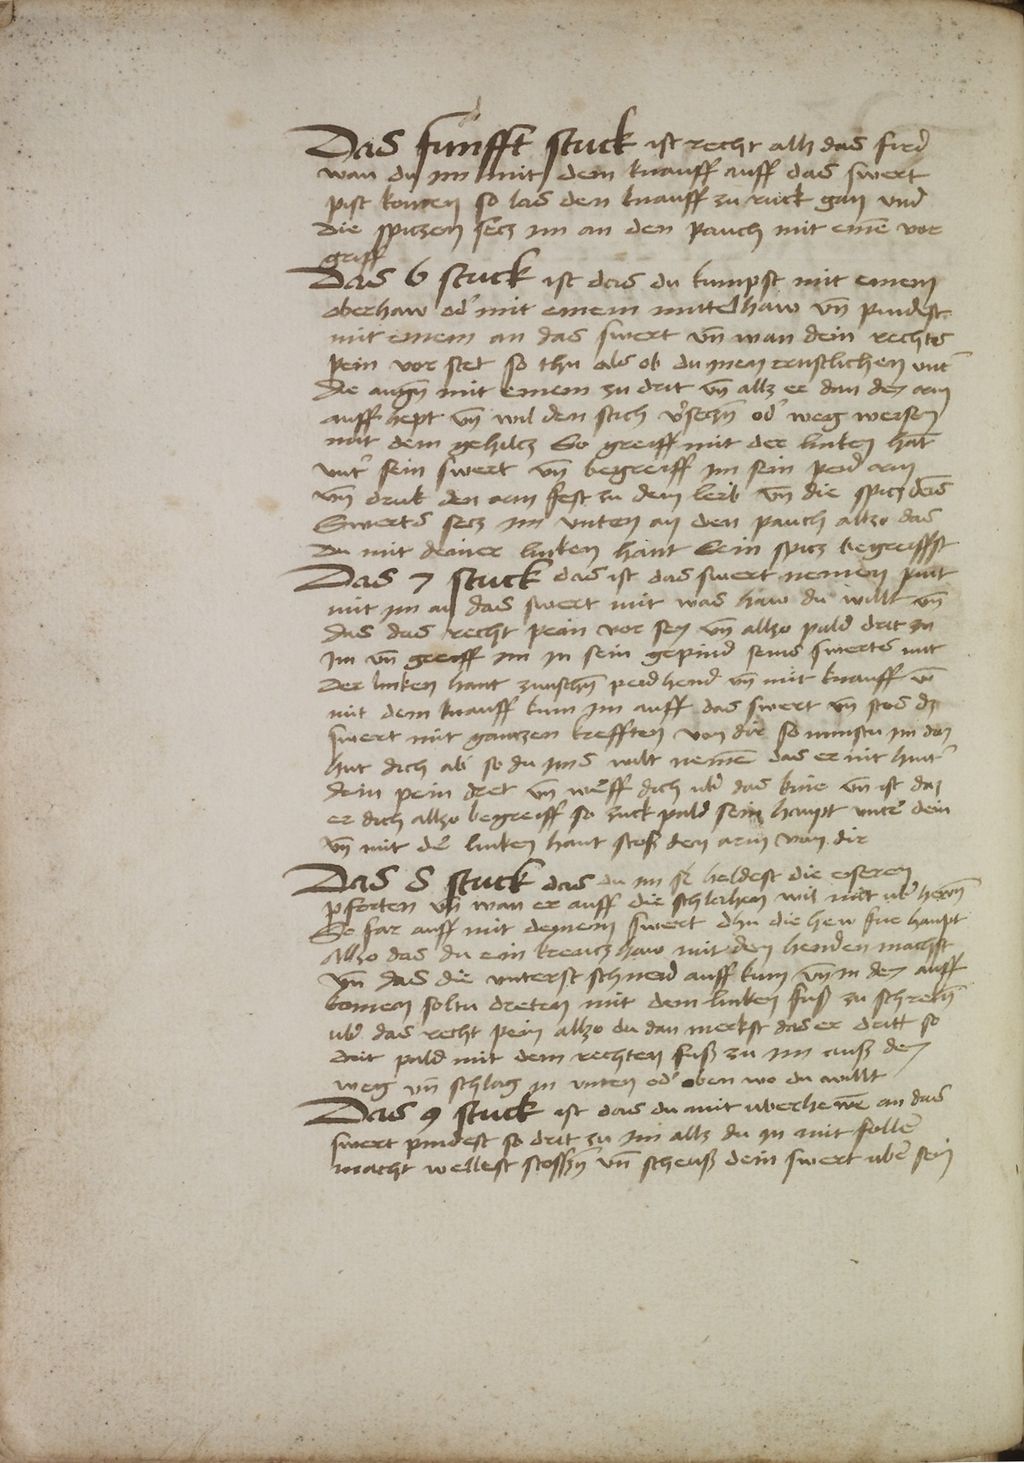 Das funfft stuck ist recht allz das fird
wan du im mit dem knauff auff das swert
pist komen so las den knauff zu ruck gan vnd
die spiczen secz im an den pauch mit eine vor
griff
Das 6 stuck ist das du kumpst mit einem
oberhaw od' mit einem mittelhaw vn pindest
mit einem an das swert vn wan dein rechts
pein vor stet so thu als ob du in en ernstlichen vnt'
die augn mit einem zu drit vn allz er dan den arm
auff hept vn wil den stich v'seczn od' weg weisen
mit dem gehilcz So greiff mit der linken hant
vnt' sein swert vn begreiff im sein peid arm
vn druk den arm fest zu dem leib vn die spicz deis
Swerts secz im vnten an den pauch allzo das
du mit deiner linken hant dein spicz begreiffst
Das 7 stuck das ist das swert nemen pint
mit im an das swert mit was haw du willt vn
das das recht pain vor sey vn allzo pald drit zu
im vn greiff im in sein gepind seins swerts mit
der linken hant zwischn peid hend vn mit knauff vn
mit dem knauff kum im auff das swert vn stos dz
swert mit ganczen krefften von dir so nimstu im den
hut dich ab' so du ims wilt neme das er nit hint'
dein pein dret vn wurff dich ub' das knie vn ist das
er dich allzo begreiff so zuck pald sein haupt unter dein
vn mit der linken hant stoß den arm von dir
Das 8 stuck das du im heldest die eiseren
pforten vn wan er auff die schlahen wil mit ub' hewn
So far auff mit deinem swert dhu die hew fur haupt
Allzo das du ein kreucz haw mit den henden machst
vn das die unterst schneid auff kum vn in dem auff
komen soltu dreten mit dem linken fuß zu schrekn
ub' das recht pein allzo du dan merkst das er dritt so
drit pald mit dem rechten fuß zu im auß dem
weg vn schlag in vnten od' oben wo du willt
Das 9 stuck ist das du mit uberhewe an das
swert pindest so drit zu im allz du in mit folle
macht wellest stossn vn scheuß dein swert uber sein